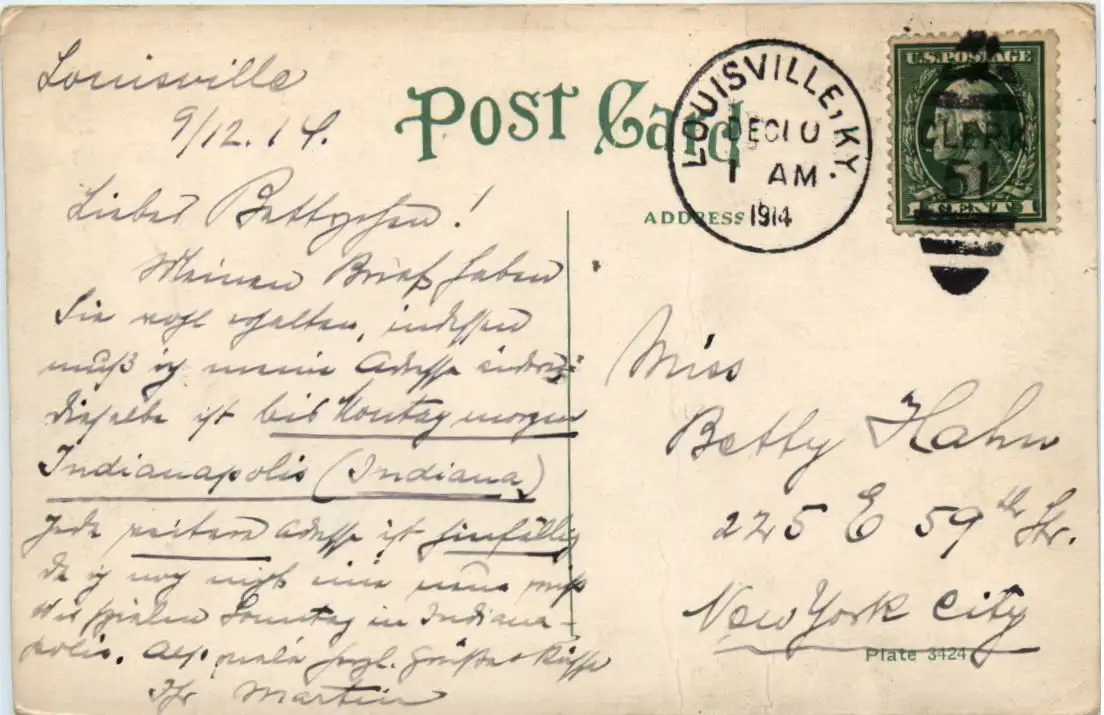 Louisville
9/12.14.
Liebes Bettychen!
Meinen Brief haben
Sie wohl erhalten, indessen
muß ich meine Adresse ändern
dieselbe ist bis Montag morgen
Indianapolis (Indiana)
Jede weitere Adresse ist hinfällig
da ich noch nicht eine neue weiß
Wir spielen Sonntag in Indiana-
polis. Also viele herzl. Grüße & Küsse
Ihr Martin
POST CARD
ADDRESS
LOUISVILLE, KY.
DEC 10
1 AM
1914
U.S. POSTAGE
CLERK
51
1 CENT 1
Miss
Betty Hahn
225 E 59th Str.
New York City
Plate 3424